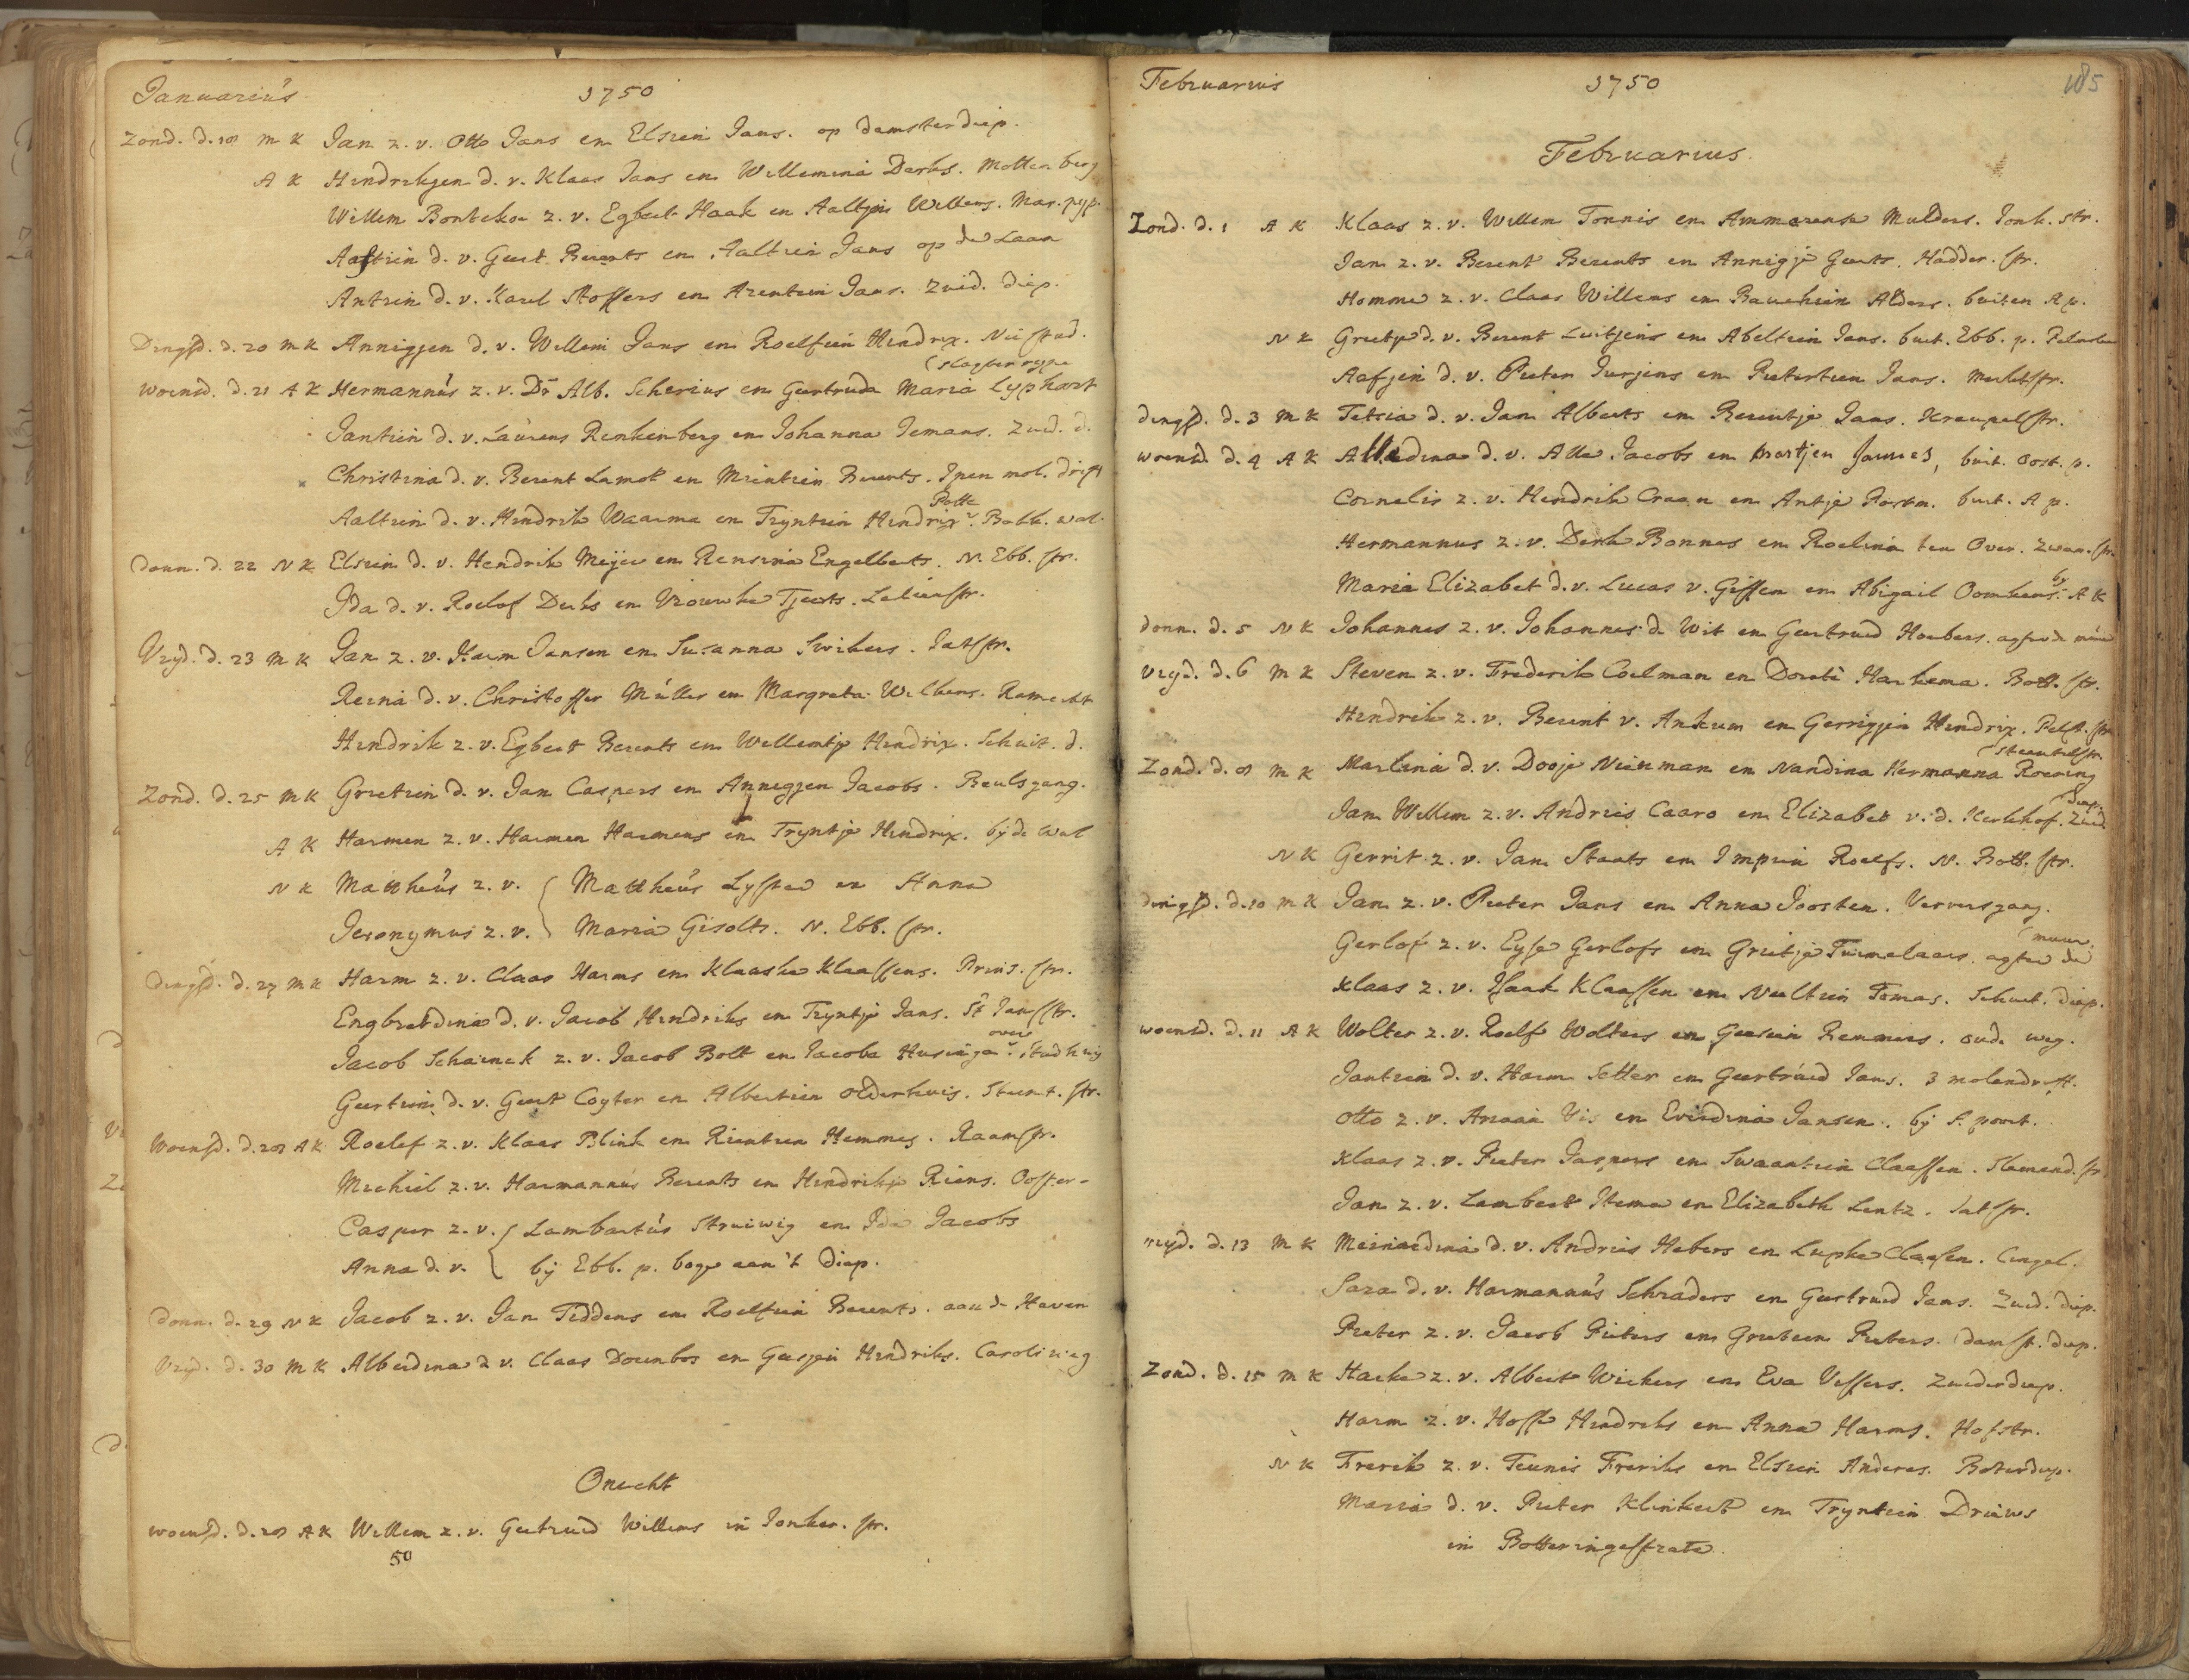 Januarius 1750
Zond. d. 18 M K Jan z. v. Otto Jans en Elsien Jans. op damsterdiep.
A K Hindrikjen d. v. Klaas Jans en Willemina Derks. Mottenberg
Willem Bontekoe z. v. Egbert Haak en Aaltjen Willems. Mar. pyp.
Aaftien d. v. Geert Berents en Aaltien Jans op de Laan
Antien d. v. Karel Stoffers en Arentien Jans. Zuid. diep.
Dingsd. d. 20 M K Annigjen d. v. Willem Jans en Roelfien Hindrix. Nie stad.
(slagter rype
Woensd. d. 21 A K Hermannus z. v. Dr Alb. Scherius en Geertruda Maria Lyphart
Jantien d. v. Laurens Renkenberg en Johanna Jemans. Zuid. d.
Christina d. v. Berent Lamot en Mientien Berents. Ipen mol. drift
Aaltien d. v. Hindrik Waarma en Tryntien Hindrix. wal.
Donn. d. 22 N K Elsien d. v. Hendrik Meijer en Rensina Engelberts. N. Ebb. str.
Ida d. v. Roelof Derks en Vrouwke Tjeerts. Leliënstr.
Vryd. d. 23 M K Jan z. v. Harm Jansen en Susanna Swikers. Jatstr.
Reina d. v. Christoffer Müller en Margreta Wilkens. Ramerkt
Hindrik z. v. Egbert Berents en Willemtje Hindrix. Schuit. d.
Zond. d. 25 M K Grietien d. v. Jan Caspers en Annegjen Jacobs. Beulsgang.
A K Harmen z. v. Harmen Harmens en Tryntje Hindrix. by de wal
N K Mattheus z. v. { Mattheus Lyster en Anna
Jeronymus z. v. } Maria Gisolts. N. Ebb. str.
Dingsd. d. 27 M K Harm z. v. Claas Harms en Klaaske Klaassens. Prins. str.
Engbertdina d. v. Jacob Hindriks en Tryntje Jans. St Janstr.
over
Jacob Schainck z. v. Jacob Bolt en Jacoba Husinga. Stadhuis
Geertien d. v. Geert Coyter en Albertien Olderhuis. Steent. str.
Woensd. d. 28 A K Roelef z. v. Klaas Blink en Rientien Hemmes. Raamstr.
Michiel z. v. Harmannus Berents en Hindrikje Riens. Ooster-
Casper z. v. { Lambartus Struiwig en Ida Jacobs
Anna d. v. { bij Ebb. p. boge aan 't Diep.
Donn. d. 29 N K Jacob z. v. Jan Tiddens en Roelfien Berents. aan de Haven
Vryd. d. 30 M K Alberdina d v. Claas Doornbos en Geesjen Hindriks. Caroliweg
Onecht
Woensd. d. 28 A K Willem z. v. Geertruid Willems in Jonker. str.
50
Februarius 1750 185
Februarius.
Zond. d. 1 A K Klaas z. v. Willem Tonnis en Ammerensk Mulders. Jonk. str.
Jan z. v. Berent Berents en Annigje Geerts. Hadder. str.
Homme z. v. Claas Willems en Baukien Alders. buiten A p.
N K Greetje d. v. Berent Luitjens en Abeltien Jans. buit. Ebb. p.
Aafjen d. v. Pieter Jurjens en Pietertien Jans. Merktstr.
Dingsd. d. 3 M K Tetsia d. v. Jan Alberts en Berentje Jans. Kreupelstr.
Woensd. d. 4 A K Alledina d. v. Alle Jacobs en Martjen Jannes, buit. Oost. p.
Cornelis z. v. Hendrik Craan en Antje Postm. buit. A p.
Hermannus z. v. Derk Bonnes en Roelina ten Over. Zwan. str.
by
Maria Elizabet d. v. Lucas v. Giffen en Abigail Oomkens. A K
Donn. d. 5 N K Johannes z. v. Johannes de Wit en Geertruid Hoebers. agter de mur
Vryd. d. 6 M K Steven z. v. Frederik Coelman en Dorete Harkema. Bott. str.
Hindrik z. v. Berent v. Ankum en Gerrigjen Hindrix. Pelst. str
(Steentilstr.
Zond. d. 8 M K Marlina d. v. Dooje Nienman en Nandina Hermanna Roering
(diep.
Jan Willem z. v. Andries Caaro en Elizabet v. d. Kerkhof. Zuid
N K Gerrit z. v. Jan Staats en Impien Roelfs. N. Bott. str.
Dingsd. d. 10 M K Jan z. v. Pieter Jans en Anna Joosten. Ververs gang.
(muur.
Gerlof z. v. Eyse Gerlofs en Grietje Tuimelaars. agter de
Klaas z. v. Isaak Klaassen en Neeltien Tomas. Schuit. diep.
Woensd. d. 11 A K Wolter z. v. Roelf Wolters en Geesien Remmers. Oude weg.
Jantien d. v. Harm Setter en Geertruid Jans. 3 molendrift.
Otto z. v. Arian Vis en Everdina Jansen. bij S. poort.
Klaas z. v. Pieter Jaspers en Swaantien Claassen. str.
Jan z. v. Lambert Stema en Elizabeth Lentz. Jatstr.
Vryd. d. 13 M K Meinardina d. v. Andries Hebers en Lupke Claasen. Cingel.
Sara d. v. Harmannus Schraders en Geertruid Jans. Zuid. diep.
Pieter z. v. Jacob Pieters en Grietien Pieters. Damst. diep.
Zond. d. 15 M K Harke z. v. Albert Wickers en Eva Vissers. Zuiderdiep.
Harm z. v. Hosse Hindriks en Anna Harms. Hofstr.
N K Frerik z. v. Teunis Freriks en Elsien Anderes. Boterdiep.
Maria d. v. Pieter Klinkert en Tryntien Driews
in Botteringestrate.